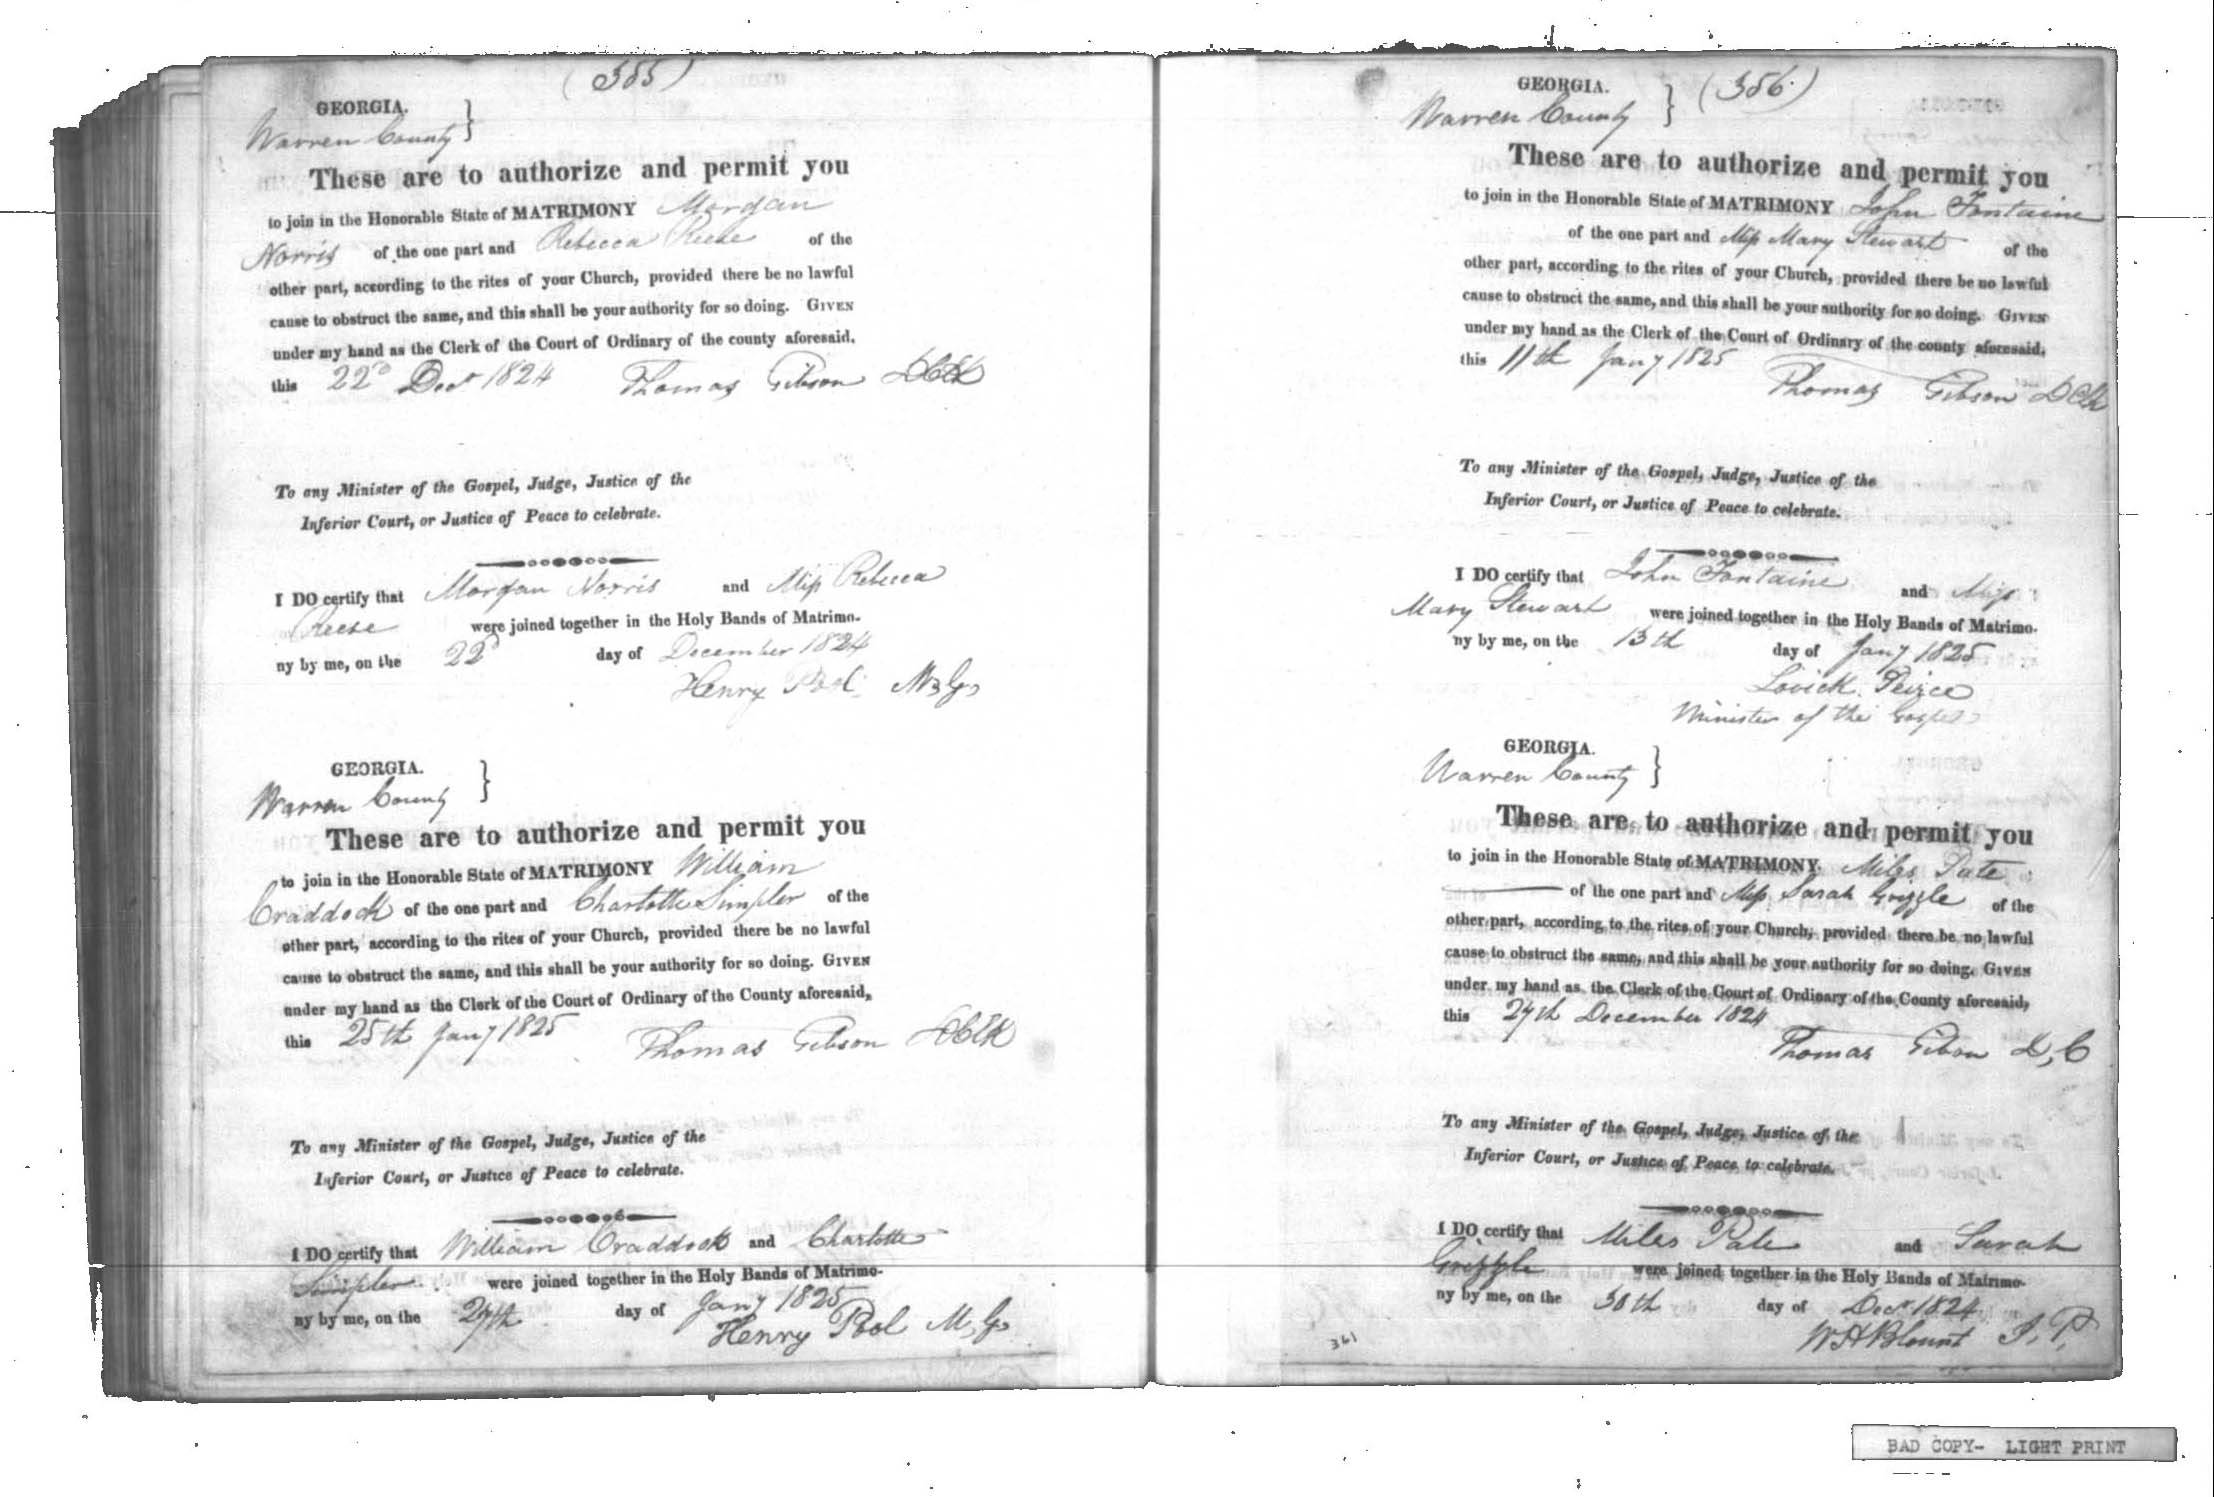 (385)
GEORGIA. }
Warren County
These are to authorize and permit you
to join in the Honorable State of MATRIMONY Morgan
Norris of the one part and Rebecca Reese of the
other part, according to the rites of your Church, provided there be no lawful
cause to obstruct the same, and this shall be your authority for so doing. GIVEN
under my hand as the Clerk of the Court of Ordinary of the county aforesaid,
this 22d Decr 1824 Thomas Gibson DClk
To any Minister of the Gospel, Judge, Justice of the
Inferior Court, or Justice of Peace to celebrate.
I DO certify that Morgan Norris and Miss Rebecca
Reese were joined together in the Holy Bands of Matrimo-
ny by me, on the 22d day of December 1824
Henry Pool M.G.
GEORGIA. }
Warren County
These are to authorize and permit you
to join in the Honorable State of MATRIMONY William
Craddock of the one part and Charlotte Simpler of the
other part, according to the rites of your Church, provided there be no lawful
cause to obstruct the same, and this shall be your authority for so doing. GIVEN
under my hand as the Clerk of the Court of Ordinary of the County aforesaid,
this 25th Jany 1825 Thomas Gibson DClk
To any Minister of the Gospel, Judge, Justice of the
Inferior Court, or Justice of Peace to celebrate.
I DO certify that William Craddock and Charlotte
Simpler were joined together in the Holy Bands of Matrimo-
ny by me, on the 27th day of Jany 1825
Henry Pool M.G.
GEORGIA. } (386.)
Warren County
These are to authorize and permit you
to join in the Honorable State of MATRIMONY John Fontaine
of the one part and Miss Mary Stewart of the
other part, according to the rites of your Church, provided there be no lawful
cause to obstruct the same, and this shall be your authority for so doing. GIVEN
under my hand as the Clerk of the Court of Ordinary of the county aforesaid,
this 11th Jany 1825
Thomas Gibson DClk
To any Minister of the Gospel, Judge, Justice of the
Inferior Court, or Justice of Peace to celebrate.
I DO certify that John Fontaine and Miss
Mary Stewart were joined together in the Holy Bands of Matrimo-
ny by me, on the 13th day of Jany 1825
Lovick Peirce
Minister of the Gospel
GEORGIA. }
Warren County
These are to authorize and permit you
to join in the Honorable State of MATRIMONY Miles Pate
of the one part and Miss Sarah Grizzle of the
other part, according to the rites of your Church, provided there be no lawful
cause to obstruct the same, and this shall be your authority for so doing. GIVEN
under my hand as the Clerk of the Court of Ordinary of the County aforesaid,
this 27th December 1824
Thomas Gibson D,C
To any Minister of the Gospel, Judge, Justice of the
Inferior Court, or Justice of Peace to celebrate.
I DO certify that Miles Pate and Sarah
Grizzle were joined together in the Holy Bands of Matrimo-
ny by me, on the 30th day of Decr 1824
W H Blount J.P.
361
BAD COPY- LIGHT PRINT